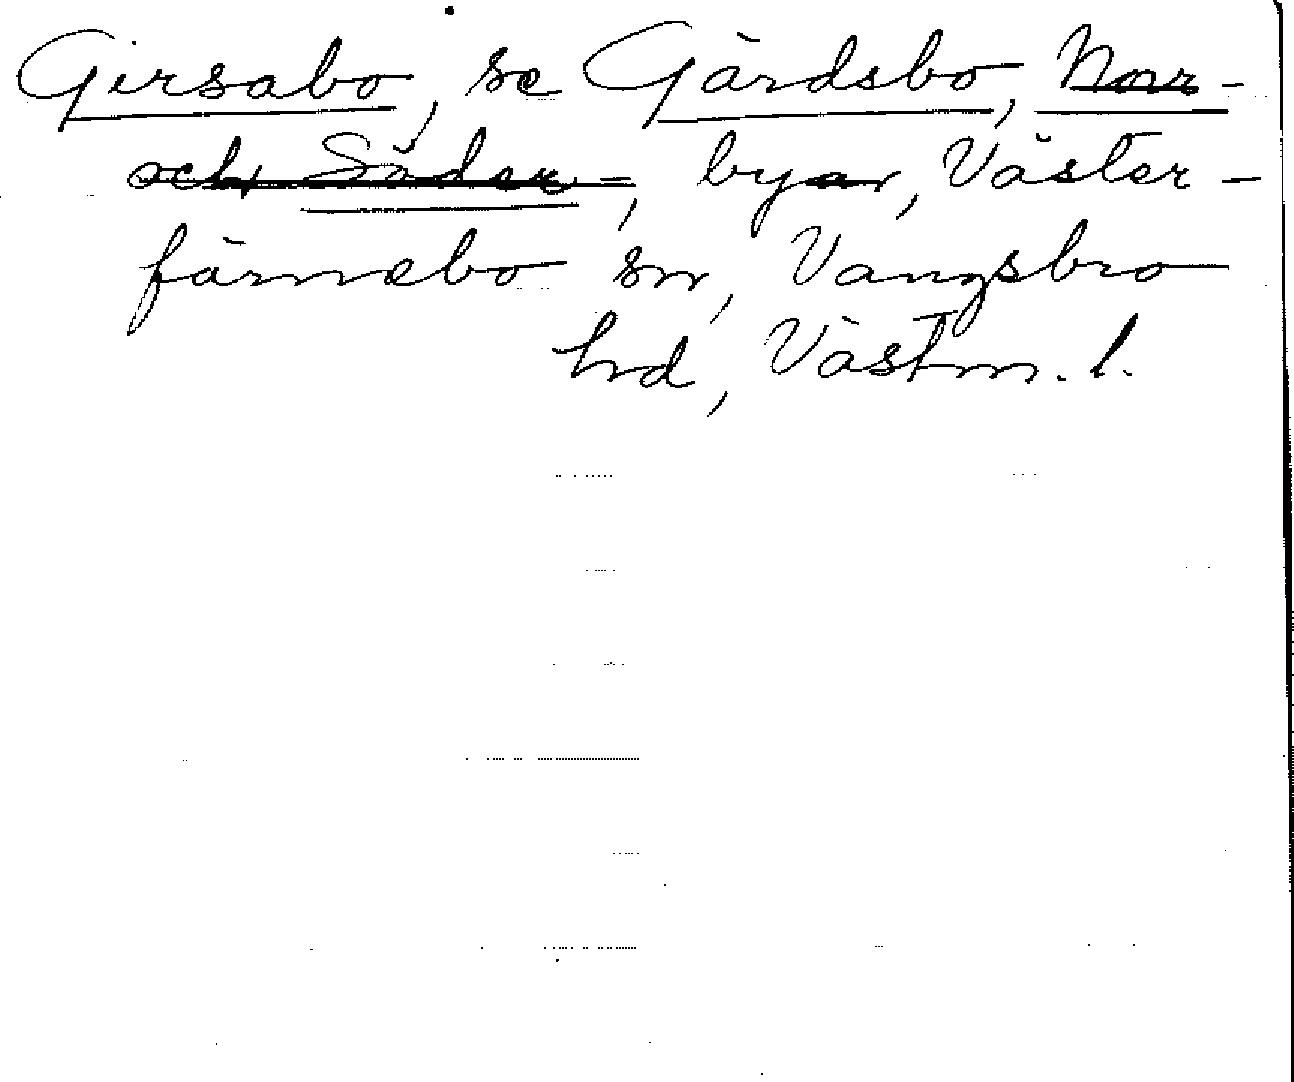 Girsabo, se Gärdsbo, Norr-
och Söder-, byar, Väster-
färnebo sn, Vangsbro
hd, Västm. l.